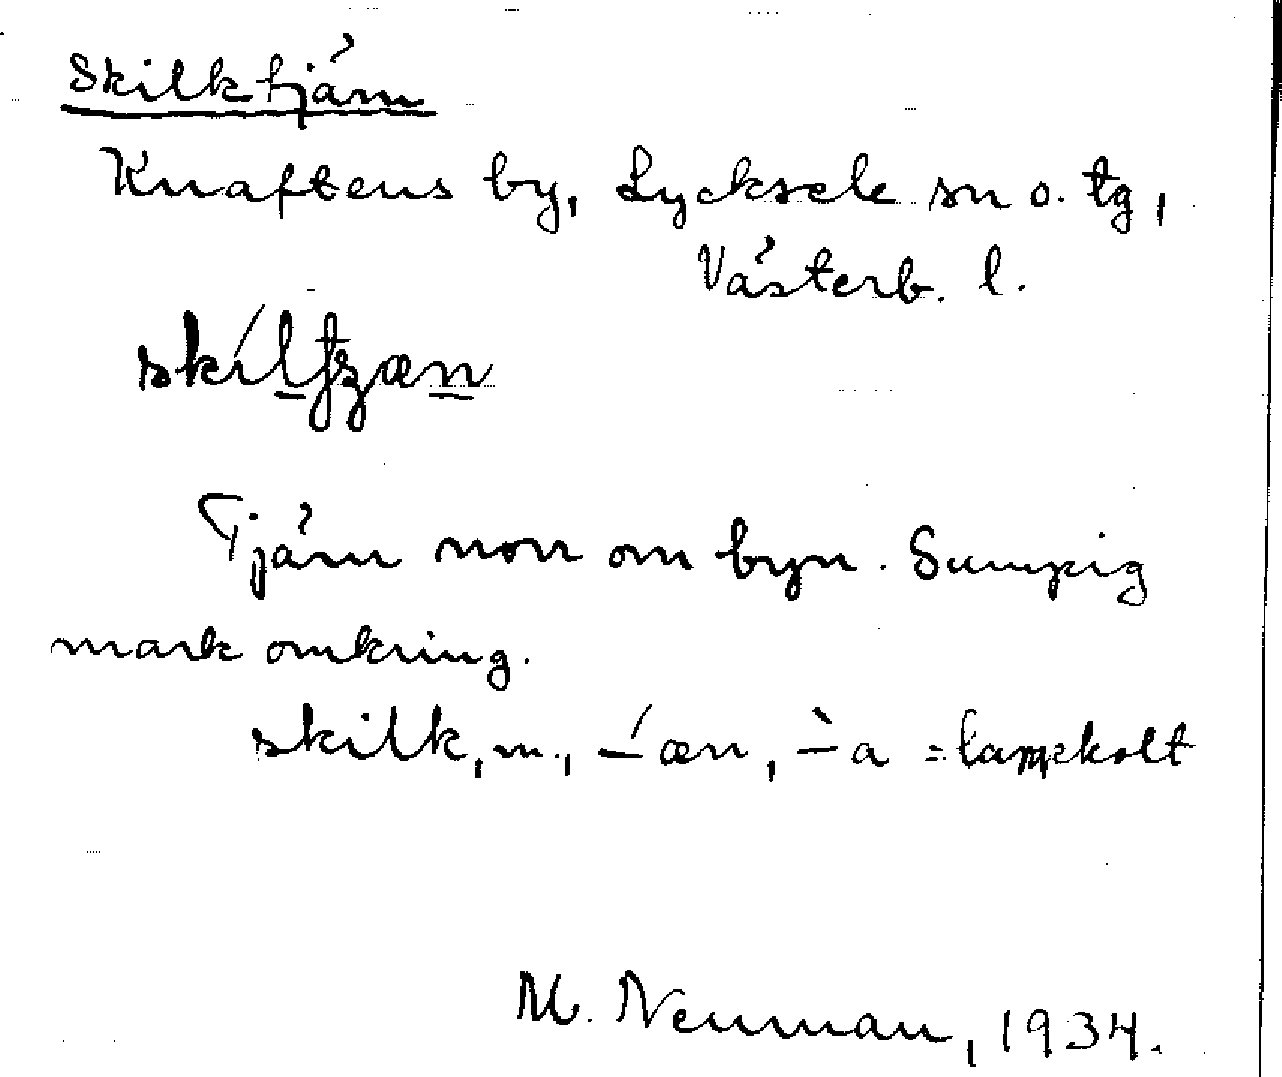 Skilktjärn
Knaftens by, Lycksele sn o. tg,
Västerb. l.
Tjärn norr om byn. Sumpig
mark omkring.
skilk, m., –́æn, –̀a = lappkolt
M. Neuman, 1934.